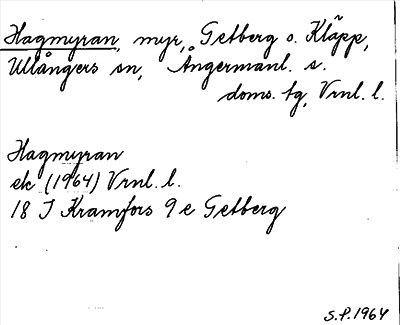 Hagmyran, myr, Getberg o. Kläpp,
Ullångers sn, Ångermanl. s.
doms. tg, Vrnl. l.
Hagmyran
ek (1964) Vrnl. l.
18 J Kramfors 9 e Getberg
S.P. 1964